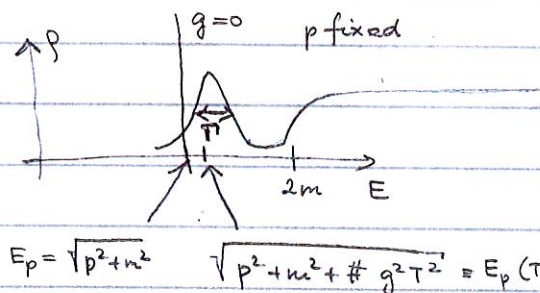 g=0 p fixed
ρ
Γ
2m E
E_p = √(p²+m²) √(p²+m²+ # g²T²) ≡ E_p (T